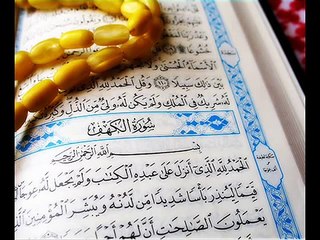 ٱلْأَسْمَآءُ ٱلْحُسْنَىٰ وَلَا
بَيْنَ ذَٰلِكَ سَبِيلًا ١١٠ وَقُلِ ٱلْحَمْدُ لِلَّهِ
لَّهُۥ شَرِيكٌ فِى ٱلْمُلْكِ وَلَمْ يَكُن لَّهُۥ وَلِىٌّ مِّنَ ٱلذُّلِّ
سُورَةُ ٱلْكَهْفِ
بِسْمِ ٱللَّهِ ٱلرَّحْمَٰنِ ٱلرَّحِيمِ
ٱلْحَمْدُ لِلَّهِ ٱلَّذِىٓ أَنزَلَ عَلَىٰ عَبْدِهِ ٱلْكِتَٰبَ وَلَمْ يَجْعَل لَّهُۥ عِوَجَا
قَيِّمًا لِّيُنذِرَ بَأْسًا شَدِيدًا مِّن لَّدُنْهُ وَيُبَشِّرَ ٱلْمُؤْمِنِينَ
يَعْمَلُونَ ٱلصَّٰلِحَٰتِ أَنَّ لَهُمْ